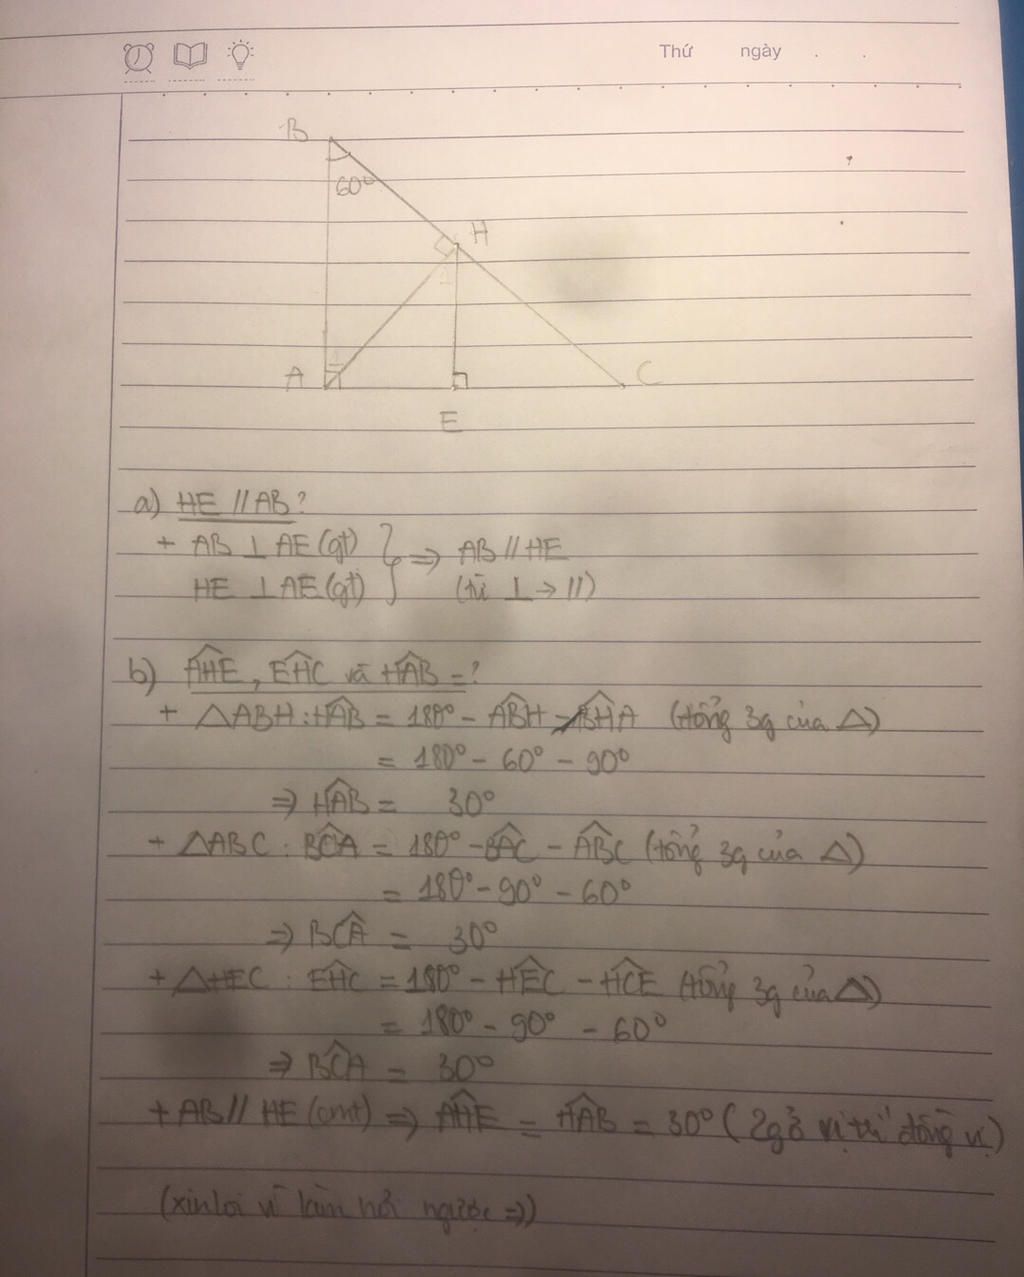 Thứ ngày . .
B
60°
H
1
A
1
E
C
a) HE // AB?
+ AB ⊥ AE (gt) } ⇒ AB // HE
HE ⊥ AE (gt) (từ ⊥ → //)
b) AHE, EHC và HAB = ?
+ △ABH : HAB = 180° - ABH - BHA (tổng 3g của △)
= 180° - 60° - 90°
⇒ HAB = 30°
+ △ABC : BCA = 180° - BAC - ABC (tổng 3g của △)
= 180° - 90° - 60°
⇒ BCA = 30°
+ △HEC : EHC = 180° - HEC - HCE (tổng 3g của △)
= 180° - 90° - 60°
⇒ BCA = 30°
+ AB // HE (cmt) ⇒ AHE = HAB = 30° (2g ở vị trí đồng vị)
(xin loi vì làm hơi ngược =))